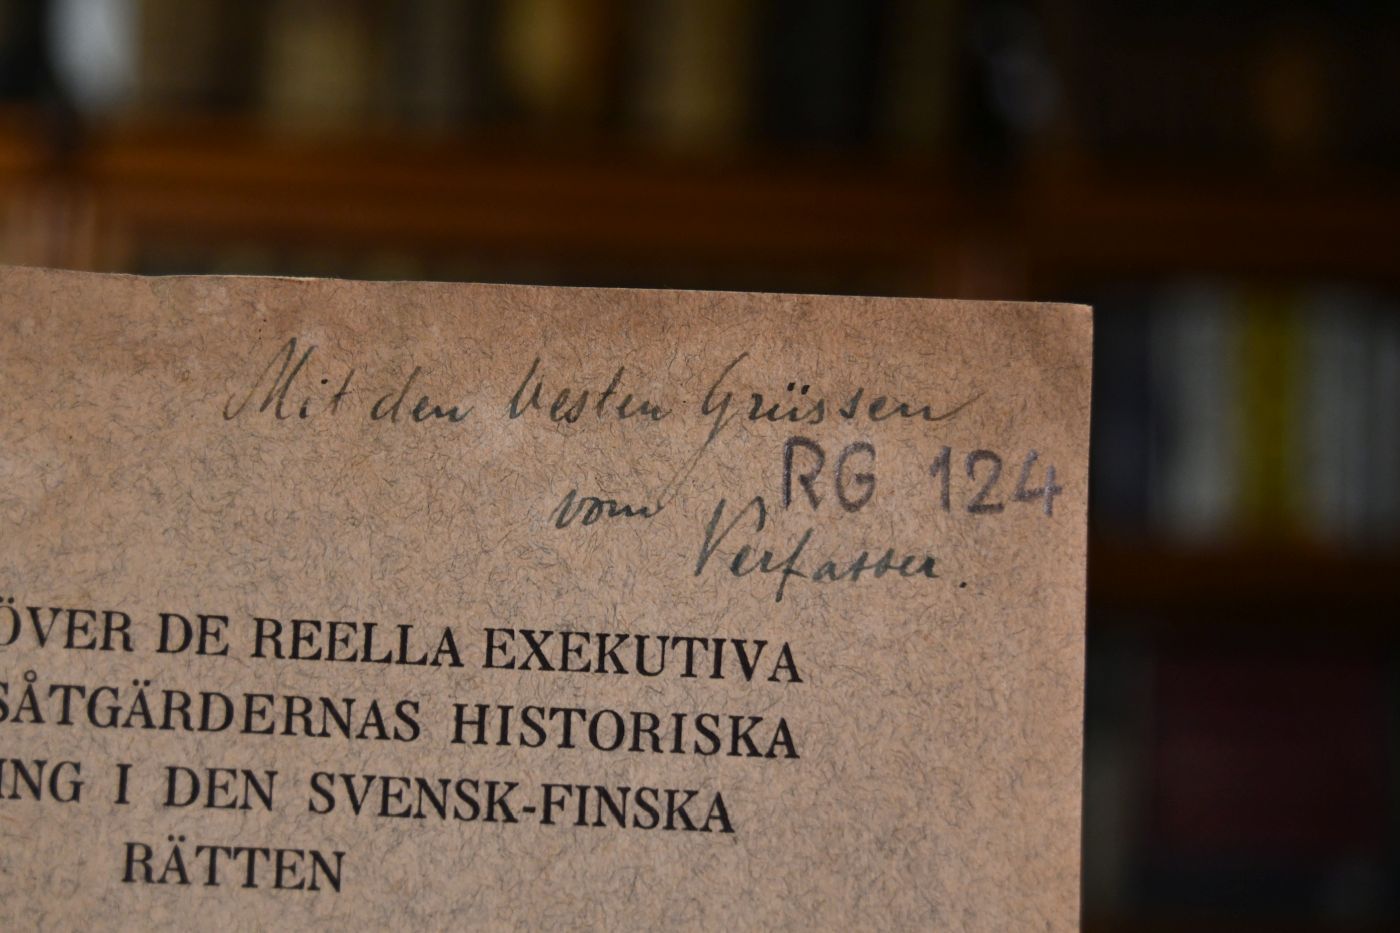 Mit den besten Grüssen
RG 124
vom Verfasser.
ÖVER DE REELLA EXEKUTIVA
SÅTGÄRDERNAS HISTORISKA
ING I DEN SVENSK-FINSKA
RÄTTEN